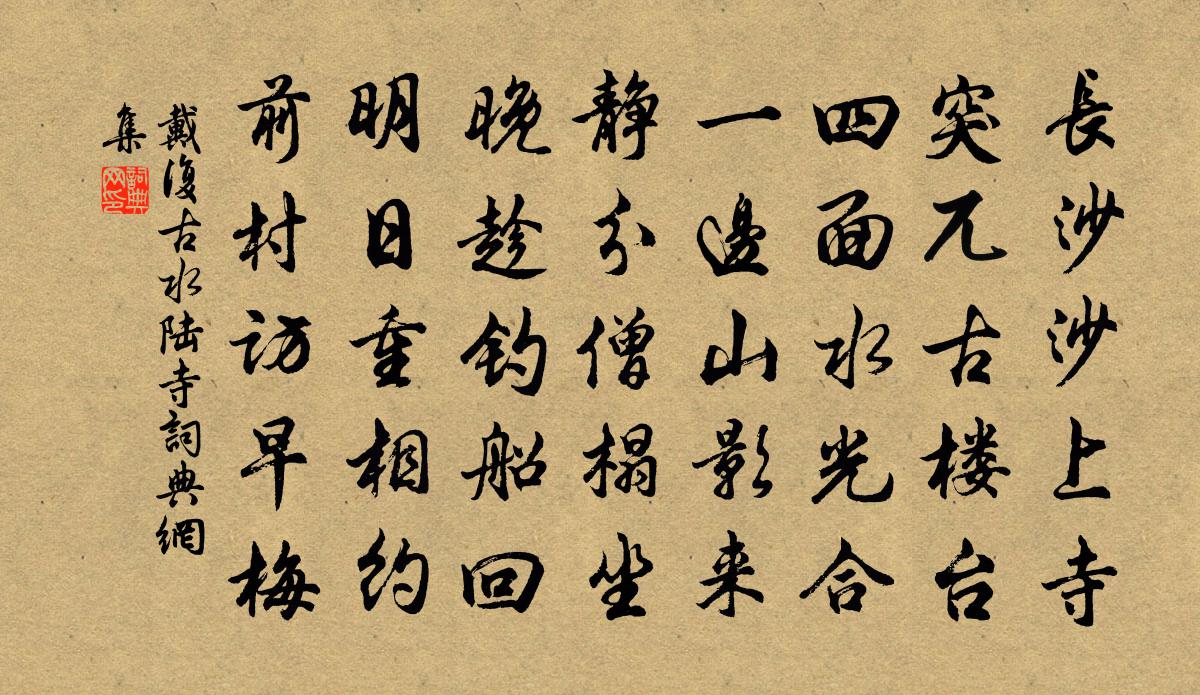 長沙沙上寺
突兀古楼台
四面水光合
一邊山影来
静分僧榻坐
晚趁釣船回
明日重相約
前村訪早梅
戴復古水陆寺詞典網
集
詞典
网印